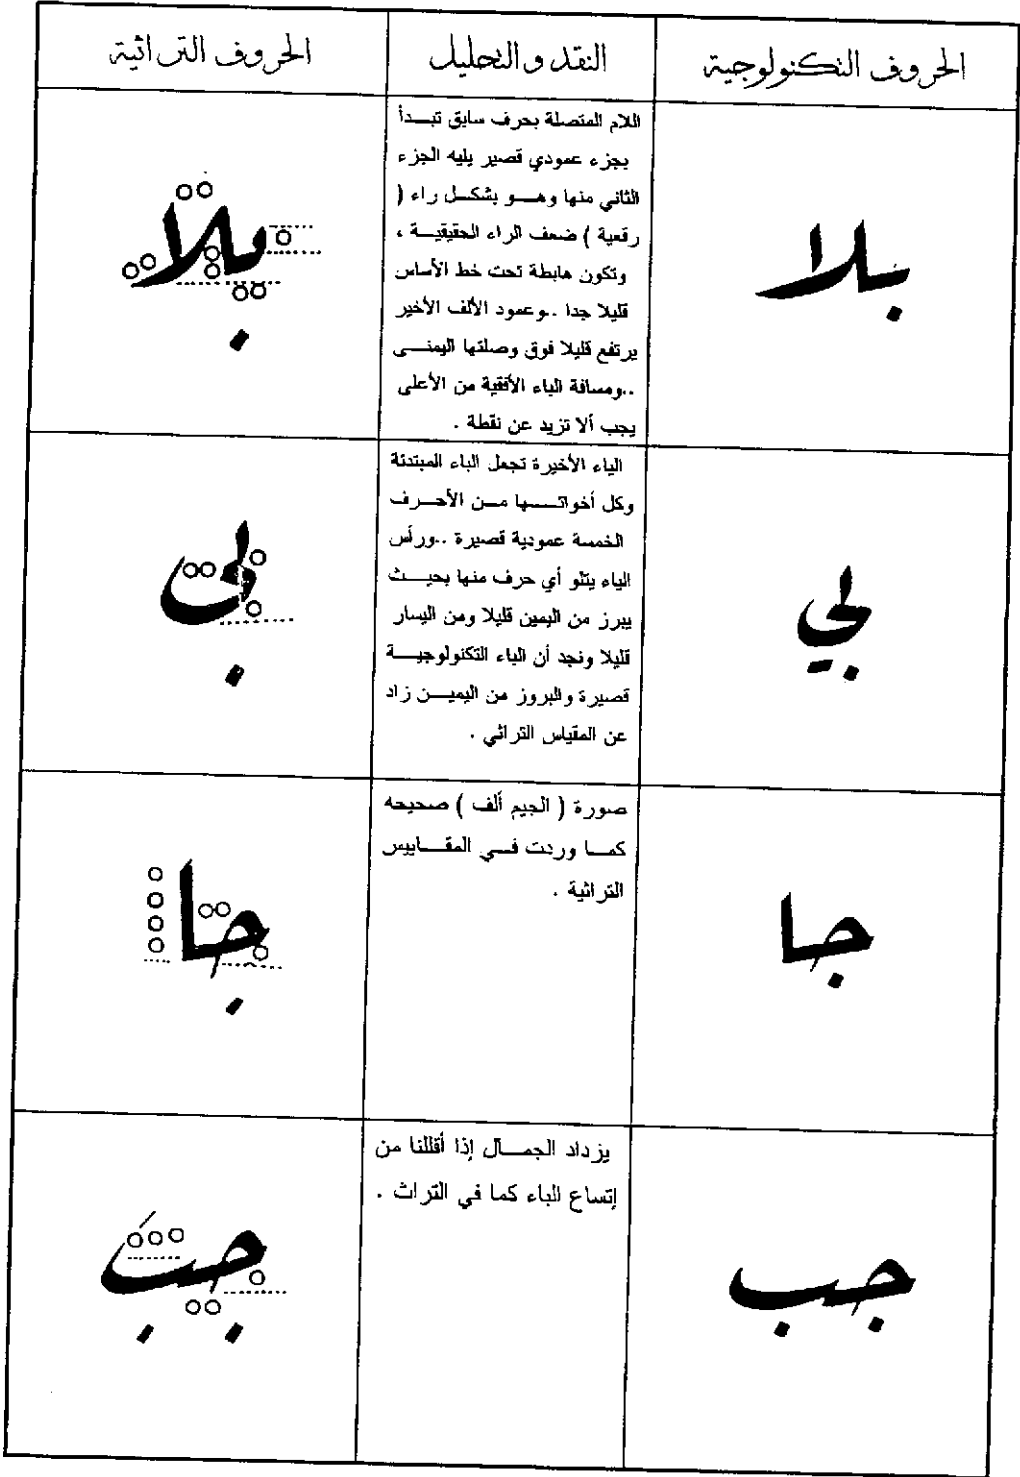 الحروف التكنولوجية
النقد والتحليل
الحروف التراثية
بلا
اللام المتصلة بحرف سابق تبـــدأ
بجزء عمودي قصير يليه الجزء
الثاني منها وهـــو بشكــل راء (
رقعية ) ضعف الراء الحقيقيـــة ،
وتكون هابطة تحت خط الأساس
قليلا جدا ..وعمود الألف الأخير
يرتفع قليلا فوق وصلتها اليمنـــى
..ومسافة الباء الأفقية من الأعلى
يجب ألا تزيد عن نقطة .
بلا
بي
الياء الأخيرة تجعل الباء المبتدئة
وكل أخواتـــــها مــن الأحــرف
الخمسة عمودية قصيرة ..ورأس
الياء يتلو أي حرف منها بحيـــث
يبرز من اليمين قليلا ومن اليسار
قليلا ونجد أن الباء التكنولوجيـــة
قصيرة والبروز من اليميـــن زاد
عن المقياس التراثي .
بى
جا
صورة ( الجيم ألف ) صحيحه
كمـــا وردت فـــي المقـــاييس
التراثية .
جا
جب
يزداد الجمـــال إذا أقللنا من
إتساع الباء كما في التراث .
جب